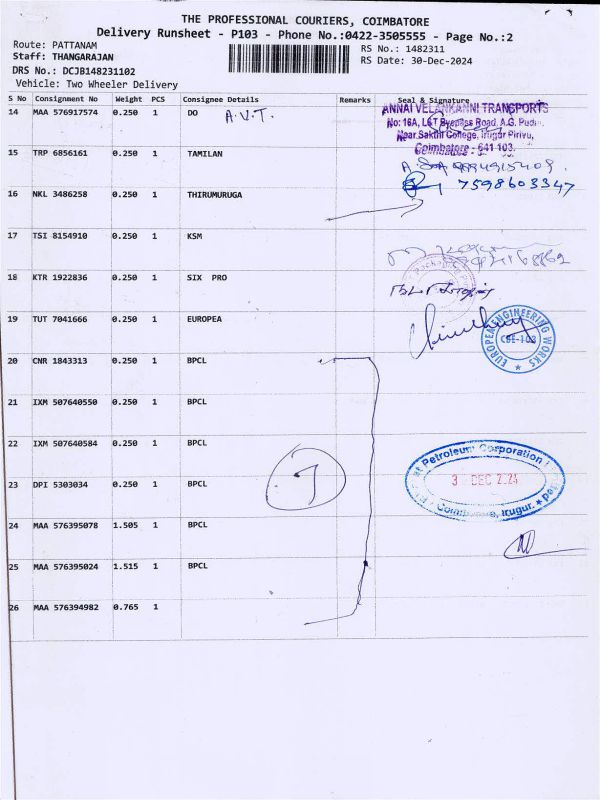 THE PROFESSIONAL COURIERS, COIMBATORE
Delivery Runsheet - P103 - Phone No.:0422-3505555 - Page No.:2
Route: PATTANAM
RS No.: 1482311
Staff: THANGARAJAN
RS Date: 30-Dec-2024
DRS No.: DCJB148231102
Vehicle: Two Wheeler Delivery
S No Consignment No Weight PCS Consignee Details Remarks Seal & Signature
14 MAA 576917574 0.250 1 DO A.V.T.
ANNAI VELANKANNI TRANSPORTS
No: 16A, L&T Byepass Road, A.G. Pudur,
Near Sakthi College, Irugur Pirivu,
Coimbatore - 641 103.
15 TRP 6856161 0.250 1 TAMILAN
16 NKL 3486258 0.250 1 THIRUMURUGA
7598603347
17 TSI 8154910 0.250 1 KSM
18 KTR 1922836 0.250 1 SIX PRO
19 TUT 7041666 0.250 1 EUROPEA
EUROPEAN ENGINEERING WORKS
CBE-103
20 CNR 1843313 0.250 1 BPCL
21 IXM 507640550 0.250 1 BPCL
22 IXM 507640584 0.250 1 BPCL
Bharat Petroleum Corporation
3 DEC 2024
Coimbatore, Irugur.
23 DPI 5303034 0.250 1 BPCL
7
24 MAA 576395078 1.505 1 BPCL
25 MAA 576395024 1.515 1 BPCL
26 MAA 576394982 0.765 1